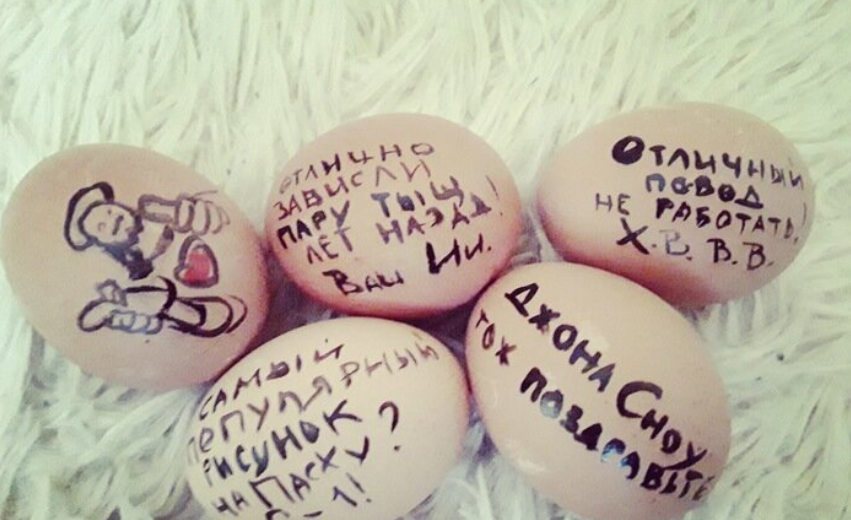 ОТЛИЧНО
ЗАВИСЛИ
ПАРУ ТЫЩ
ЛЕТ НАЗАД!
Ваш Ии.
Отличный
повод
не работать!
Х.В. В.В.
САМЫЙ
ПЕПУЛЯРНЫЙ
РИСУНОК
НА ПАСХУ?
ДЖОНА СНОУ
ТОЖ ПОЗДРАВЬТЕ